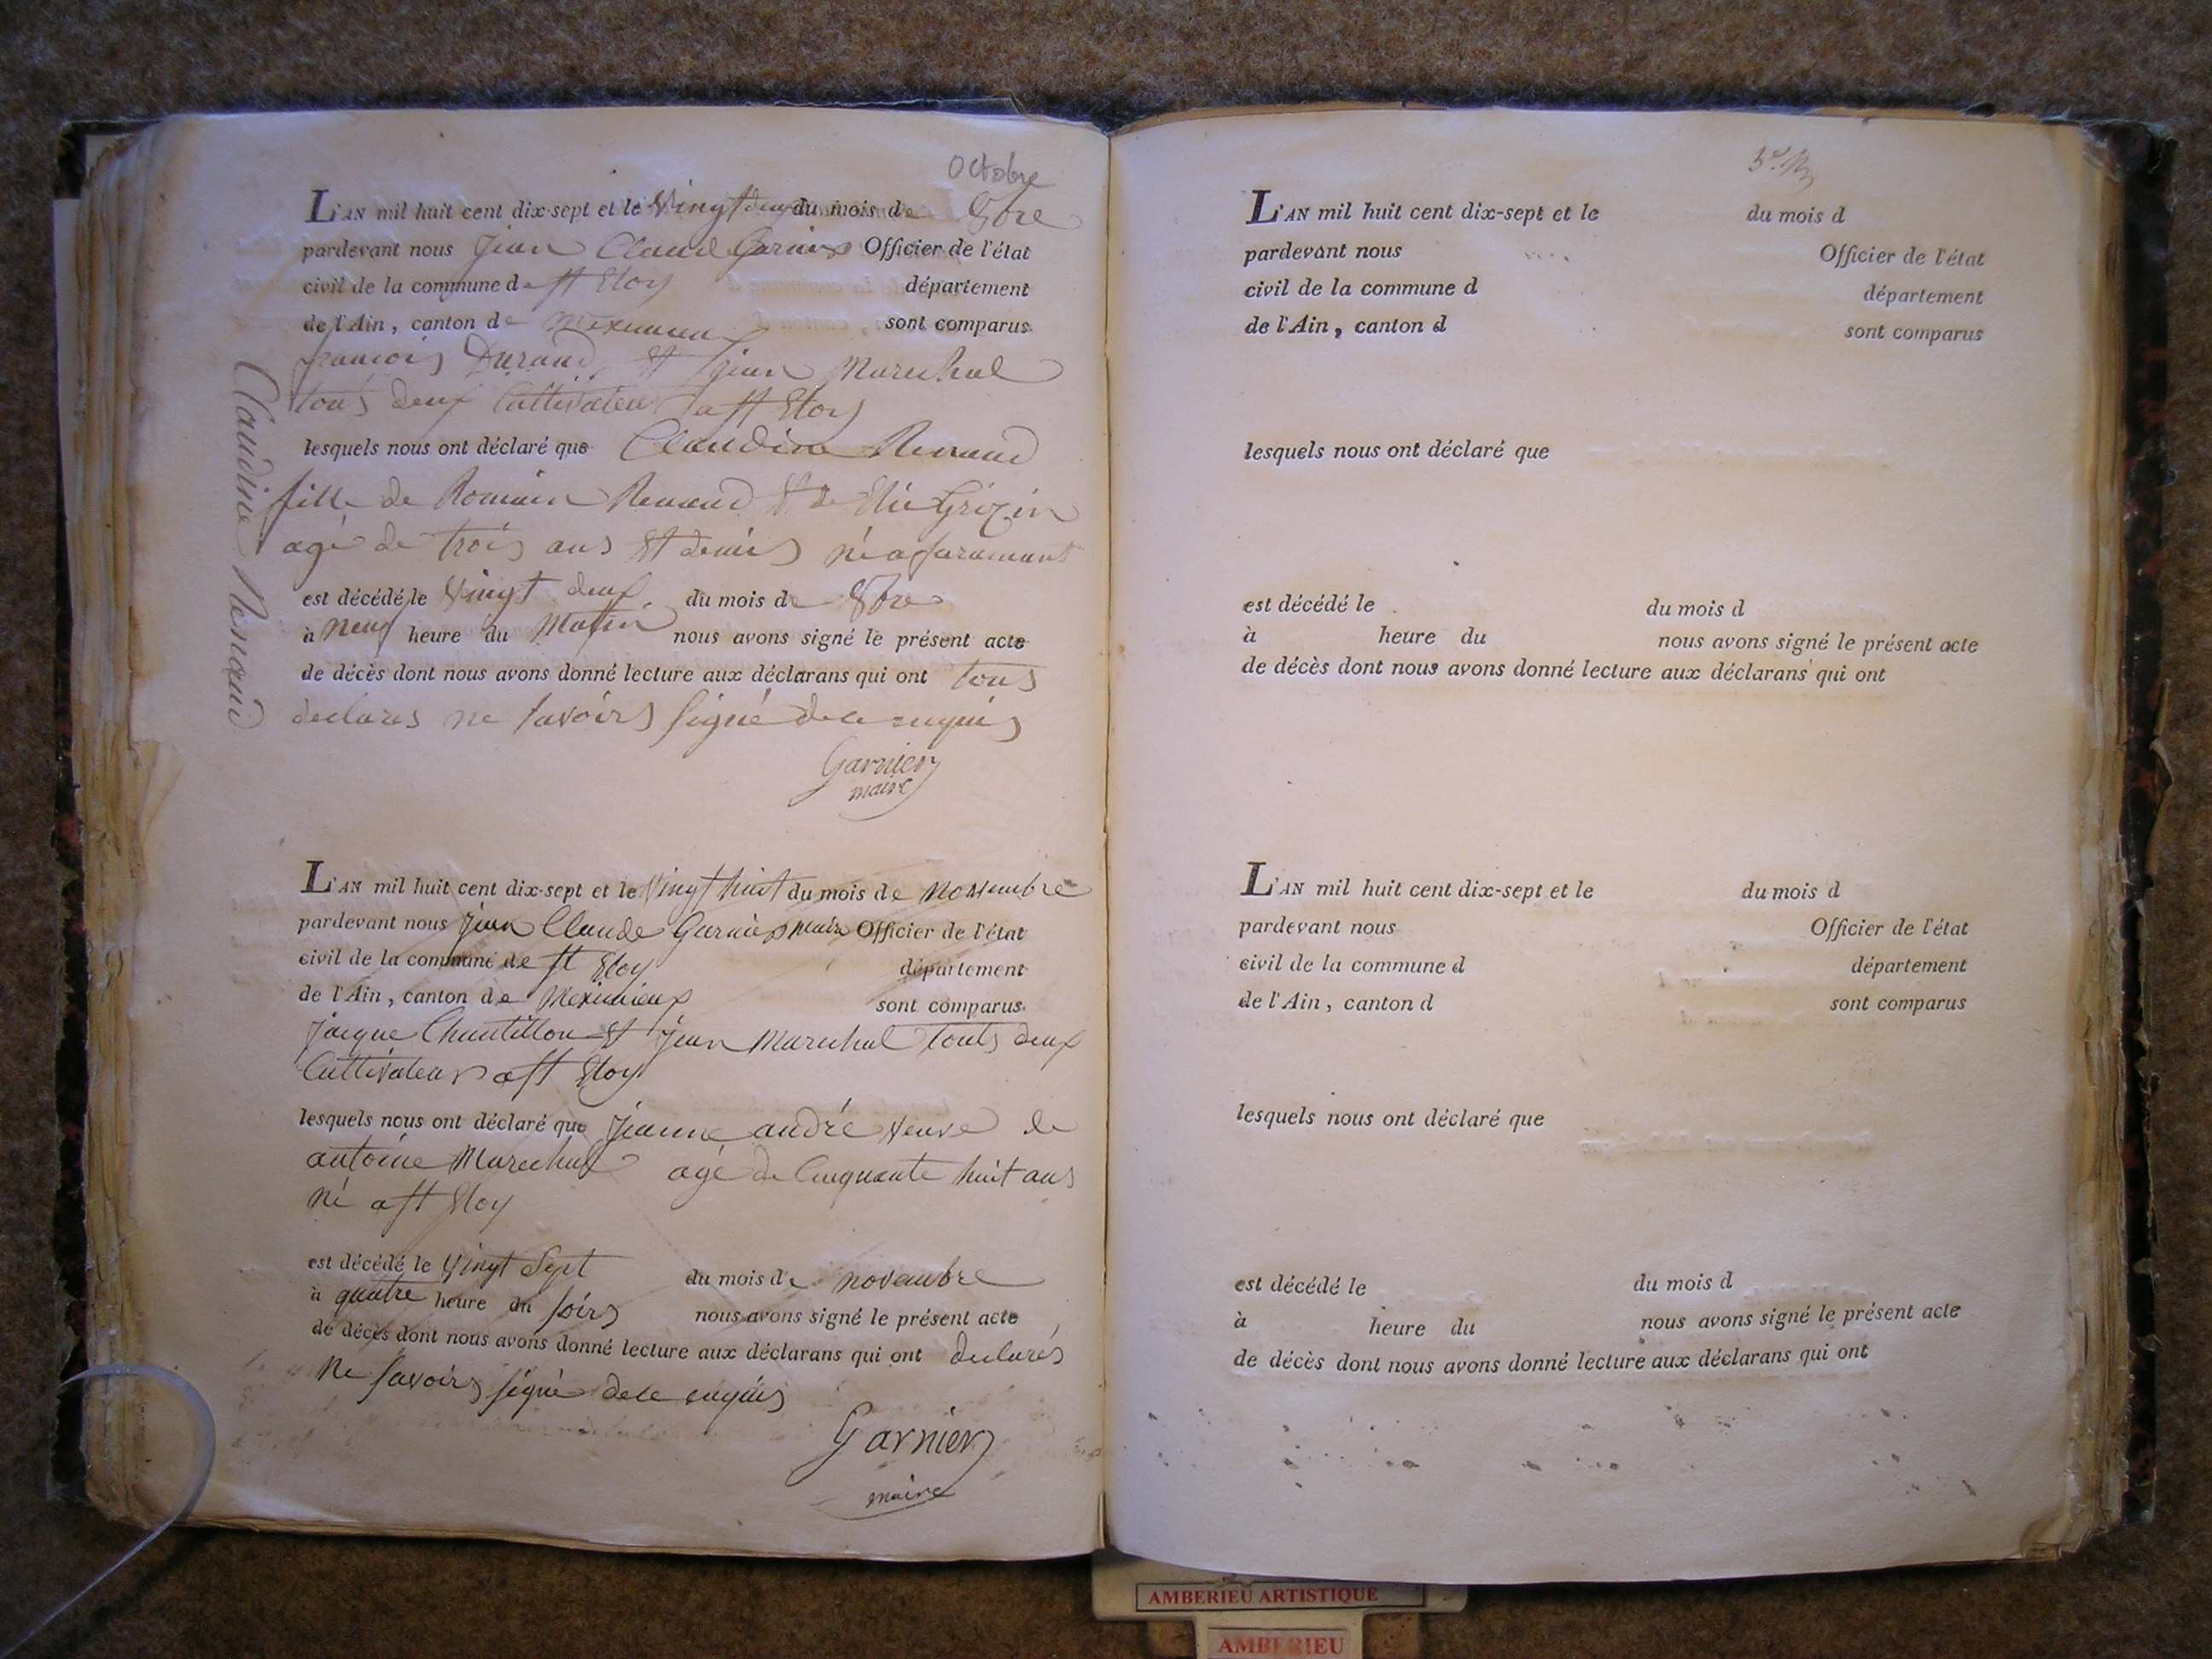 Octobre
L'AN mil huit cent dix-sept et le Vingt deux du mois de 8bre
pardevant nous Jean Claude Garnier Officier de l'état
civil de la commune de st Eloy département
de l'Ain, canton de Meximieu sont comparus
francois Durand et jean Marechal
touts deux Cultivateur a st Eloy
lesquels nous ont déclaré que Claudine Renaud
fille de Romain Renaud & de
agé de trois ans et demis né
est décédé le Vingt deux du mois de 8bre
à neuf heure du Matin nous avons signé le présent acte
de décès dont nous avons donné lecture aux déclarans qui ont touts
declares ne savoirs signé de ce enquis
Garnier
maire
Claudine Renaud
L'AN mil huit cent dix-sept et le Vingt huit du mois de novembre
pardevant nous Jean Claude Garnier maire Officier de l'état
civil de la commune de st Eloy département
de l'Ain, canton de Meximieux sont comparus
Jacque Chantillon et jean Marechal touts deux
Cultivateur a st Eloy
lesquels nous ont déclaré que Jeanne andré Veuve de
antoine Marechal agé de Cinquante huit ans
né a st Eloy
est décédé le Vingt Sept du mois de novembre
à quatre heure du soirs nous avons signé le présent acte
de décès dont nous avons donné lecture aux déclarans qui ont declarés
ne savoirs signé de ce enquis
Garnier
maire
L'AN mil huit cent dix-sept et le du mois d
pardevant nous Officier de l'état
civil de la commune d département
de l'Ain, canton d sont comparus
lesquels nous ont déclaré que
est décédé le du mois d
à heure du nous avons signé le présent acte
de décès dont nous avons donné lecture aux déclarans qui ont
L'AN mil huit cent dix-sept et le du mois d
pardevant nous Officier de l'état
civil de la commune d département
de l'Ain, canton d sont comparus
lesquels nous ont déclaré que
est décédé le du mois d
à heure du nous avons signé le présent acte
de décès dont nous avons donné lecture aux déclarans qui ont
AMBERIEU ARTISTIQUE
AMBERIEU